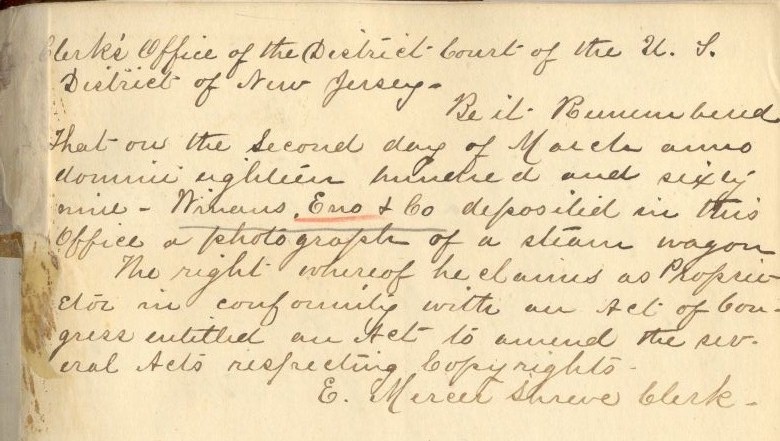 Clerk's Office of the District Court of the U. S.
District of New Jersey-
Be it Remembered
That on the Second day of March anno
domini eighteen hundred and sixty
nine - Winans, Eno & Co deposited in this
Office a photograph of a steam wagon
The right whereof he claims as Proprie-
etor in conformity with an Act of Con-
gress entitled an Act to amend the sev-
eral Acts respecting Copyrights-
E. Mercer Shreve Clerk-